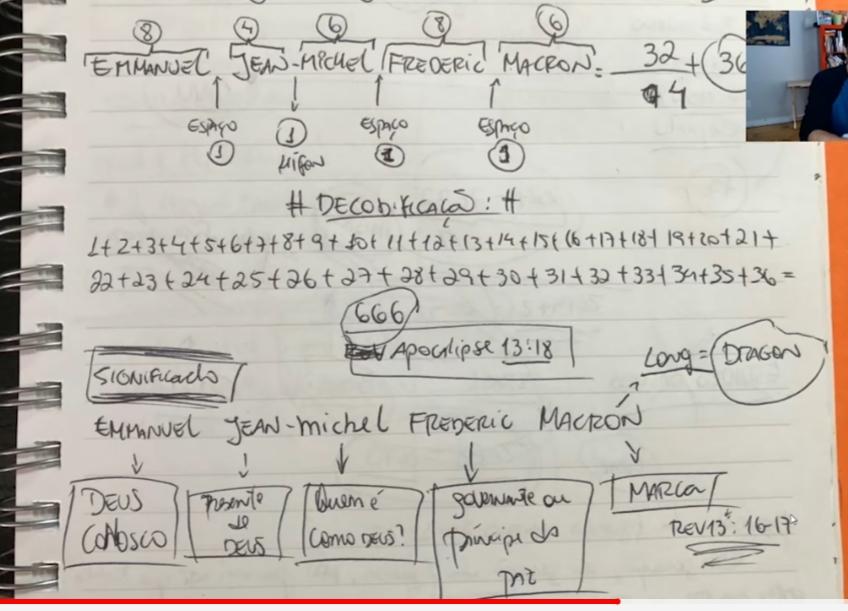 8 4 6 8 6
EMMANUEL JEAN-MICHEL FREDERIC MACRON = 32 + 36
4
ESPAÇO ESPAÇO ESPAÇO
1 1 1 1
HÍFEN
# DECODIFICAÇÃO: #
1+2+3+4+5+6+7+8+9+10+11+12+13+14+15+16+17+18+19+20+21+
22+23+24+25+26+27+28+29+30+31+32+33+34+35+36=
666
Apocalipse 13:18
Long = DRAGON
SIGNIFICADO
EMMANUEL JEAN-michel FREDERIC MACRON
DEUS Presente Quem é governante ou MARCA
CONOSCO de como DEUS? príncipe da REV 13: 16-17
DEUS paz